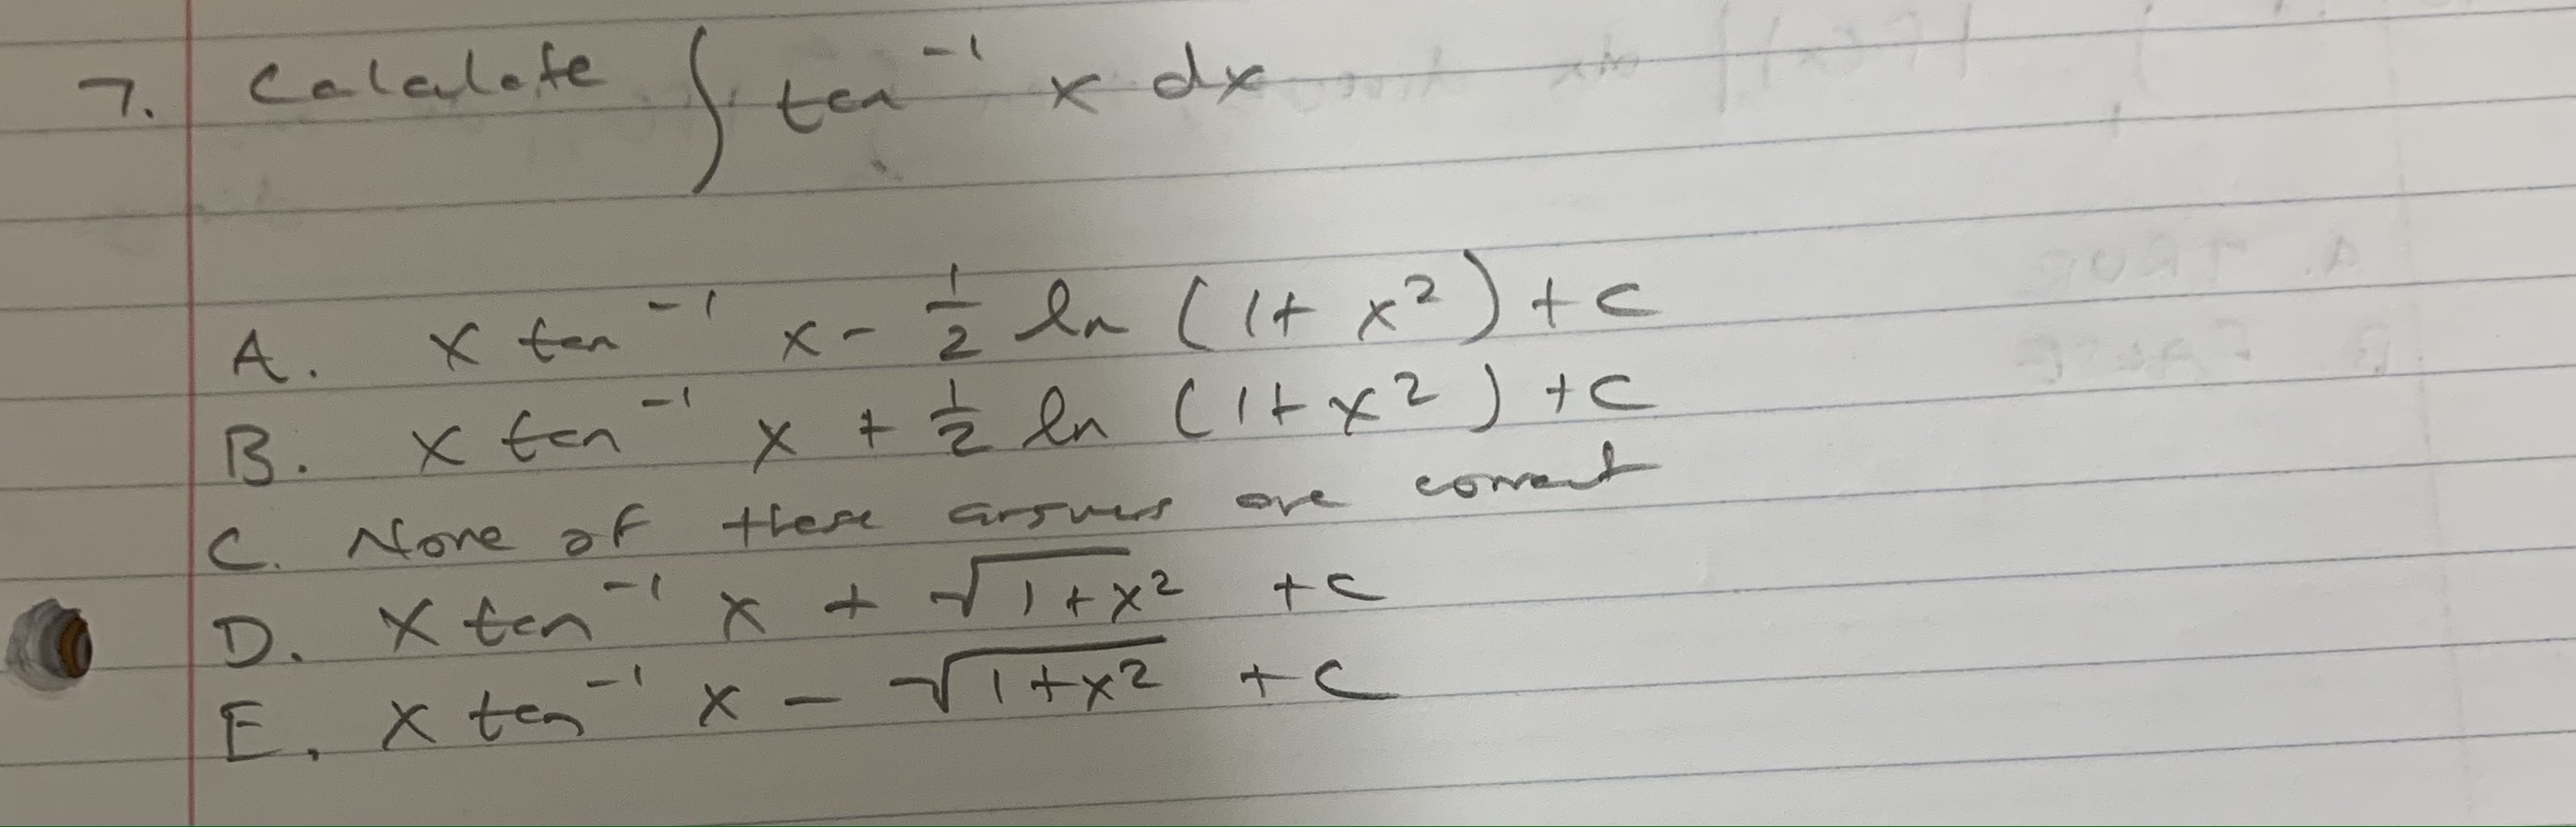 7. Calculate ∫ tan⁻¹ x dx
A. x tan⁻¹ x - 1/2 ln (1 + x²) + c
B. x tan⁻¹ x + 1/2 ln (1 + x²) + c
C. None of these answers are correct
D. x tan⁻¹ x + √(1 + x²) + c
E. x tan⁻¹ x - √(1 + x²) + c